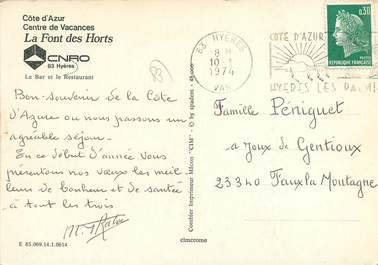 Côte d'Azur
Centre de Vacances
La Font des Horts
CNRO
83 Hyères
Le Bar et le Restaurant
83
Bon souvenir de la Côte
d'Azur ou nous passons un
agréable séjour.
En ce début d'année Vous
présentons nos vœux les meil
leurs de bonheur et de santée
à tout les trois
E 83.069.14.1.0614
Combier Imprimeur Mâcon "CIM" - © by spadem -
cimcrome
83 HYERES
8 H
10-1
1974
VAR
COTE D'AZUR
HYERES LES PALM
0,30
REPUBLIQUE FRANÇAISE
Famille Péniguet
a Joux de Gentioux
23340 Faux la Montagne